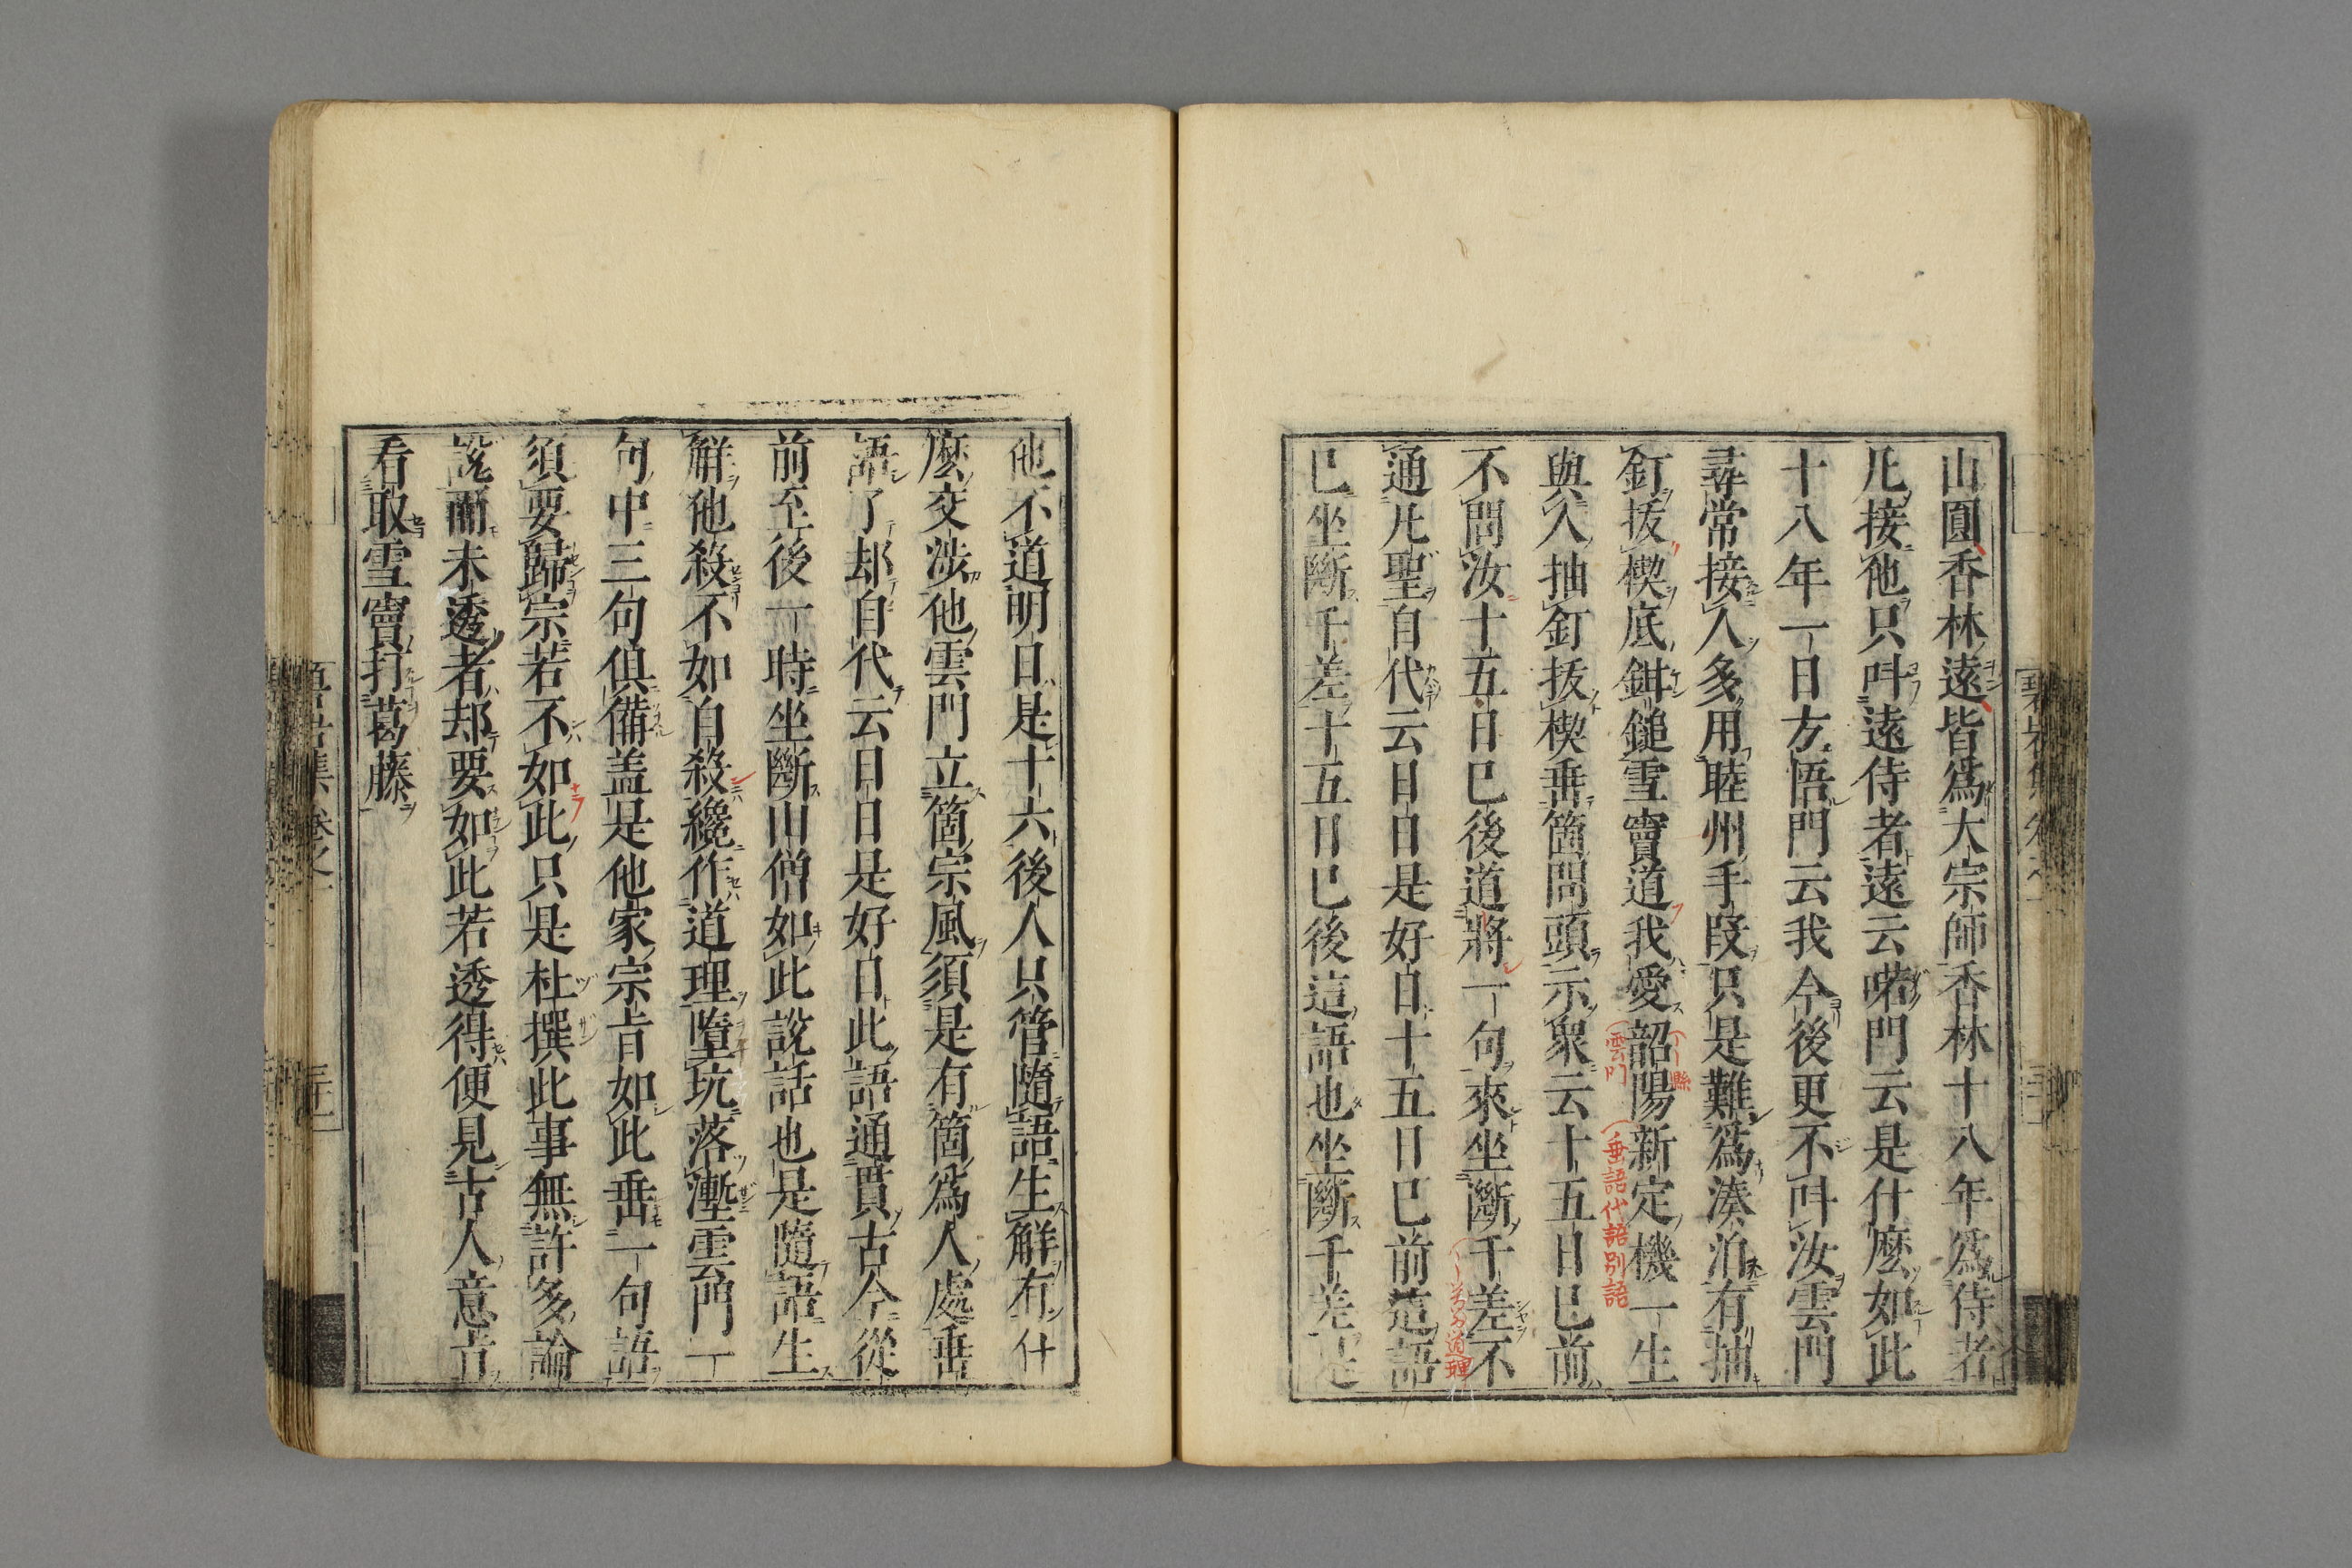 山圓香林遠皆爲大宗師香林十八年爲侍者
凡接他只呌遠侍者遠云喏門云是什麼如此
十八年一日方悟門云我今後更不呌汝雲門
尋常接人多用睦州手段只是難爲湊泊有抽
釘拔楔底鉗鎚雪竇道我愛韶陽新定機一生
與人抽釘拔楔垂箇問頭示衆云十五日已前
不問汝十五日已後道將一句來坐斷千差不
通凡聖自代云日日是好日十五日已前這語
已坐斷千差十五日已後這語也坐斷千差是
雲門
垂語代語別語
他不道明日是十六後人只管隨語生解有什
麼交涉他雲門立箇宗風須是有箇爲人處垂
語了却自代云日日是好日此語通貫古今從
前至後一時坐斷山僧如此說話也是隨語生
解他殺不如自殺纔作道理墮坑落壍雲門一
句中三句俱備盖是他家宗旨如此垂一句語
須要歸宗若不如此只是杜撰此事無許多論
說爾未透者却要如此若透得便見古人意旨
看取雪竇打葛藤